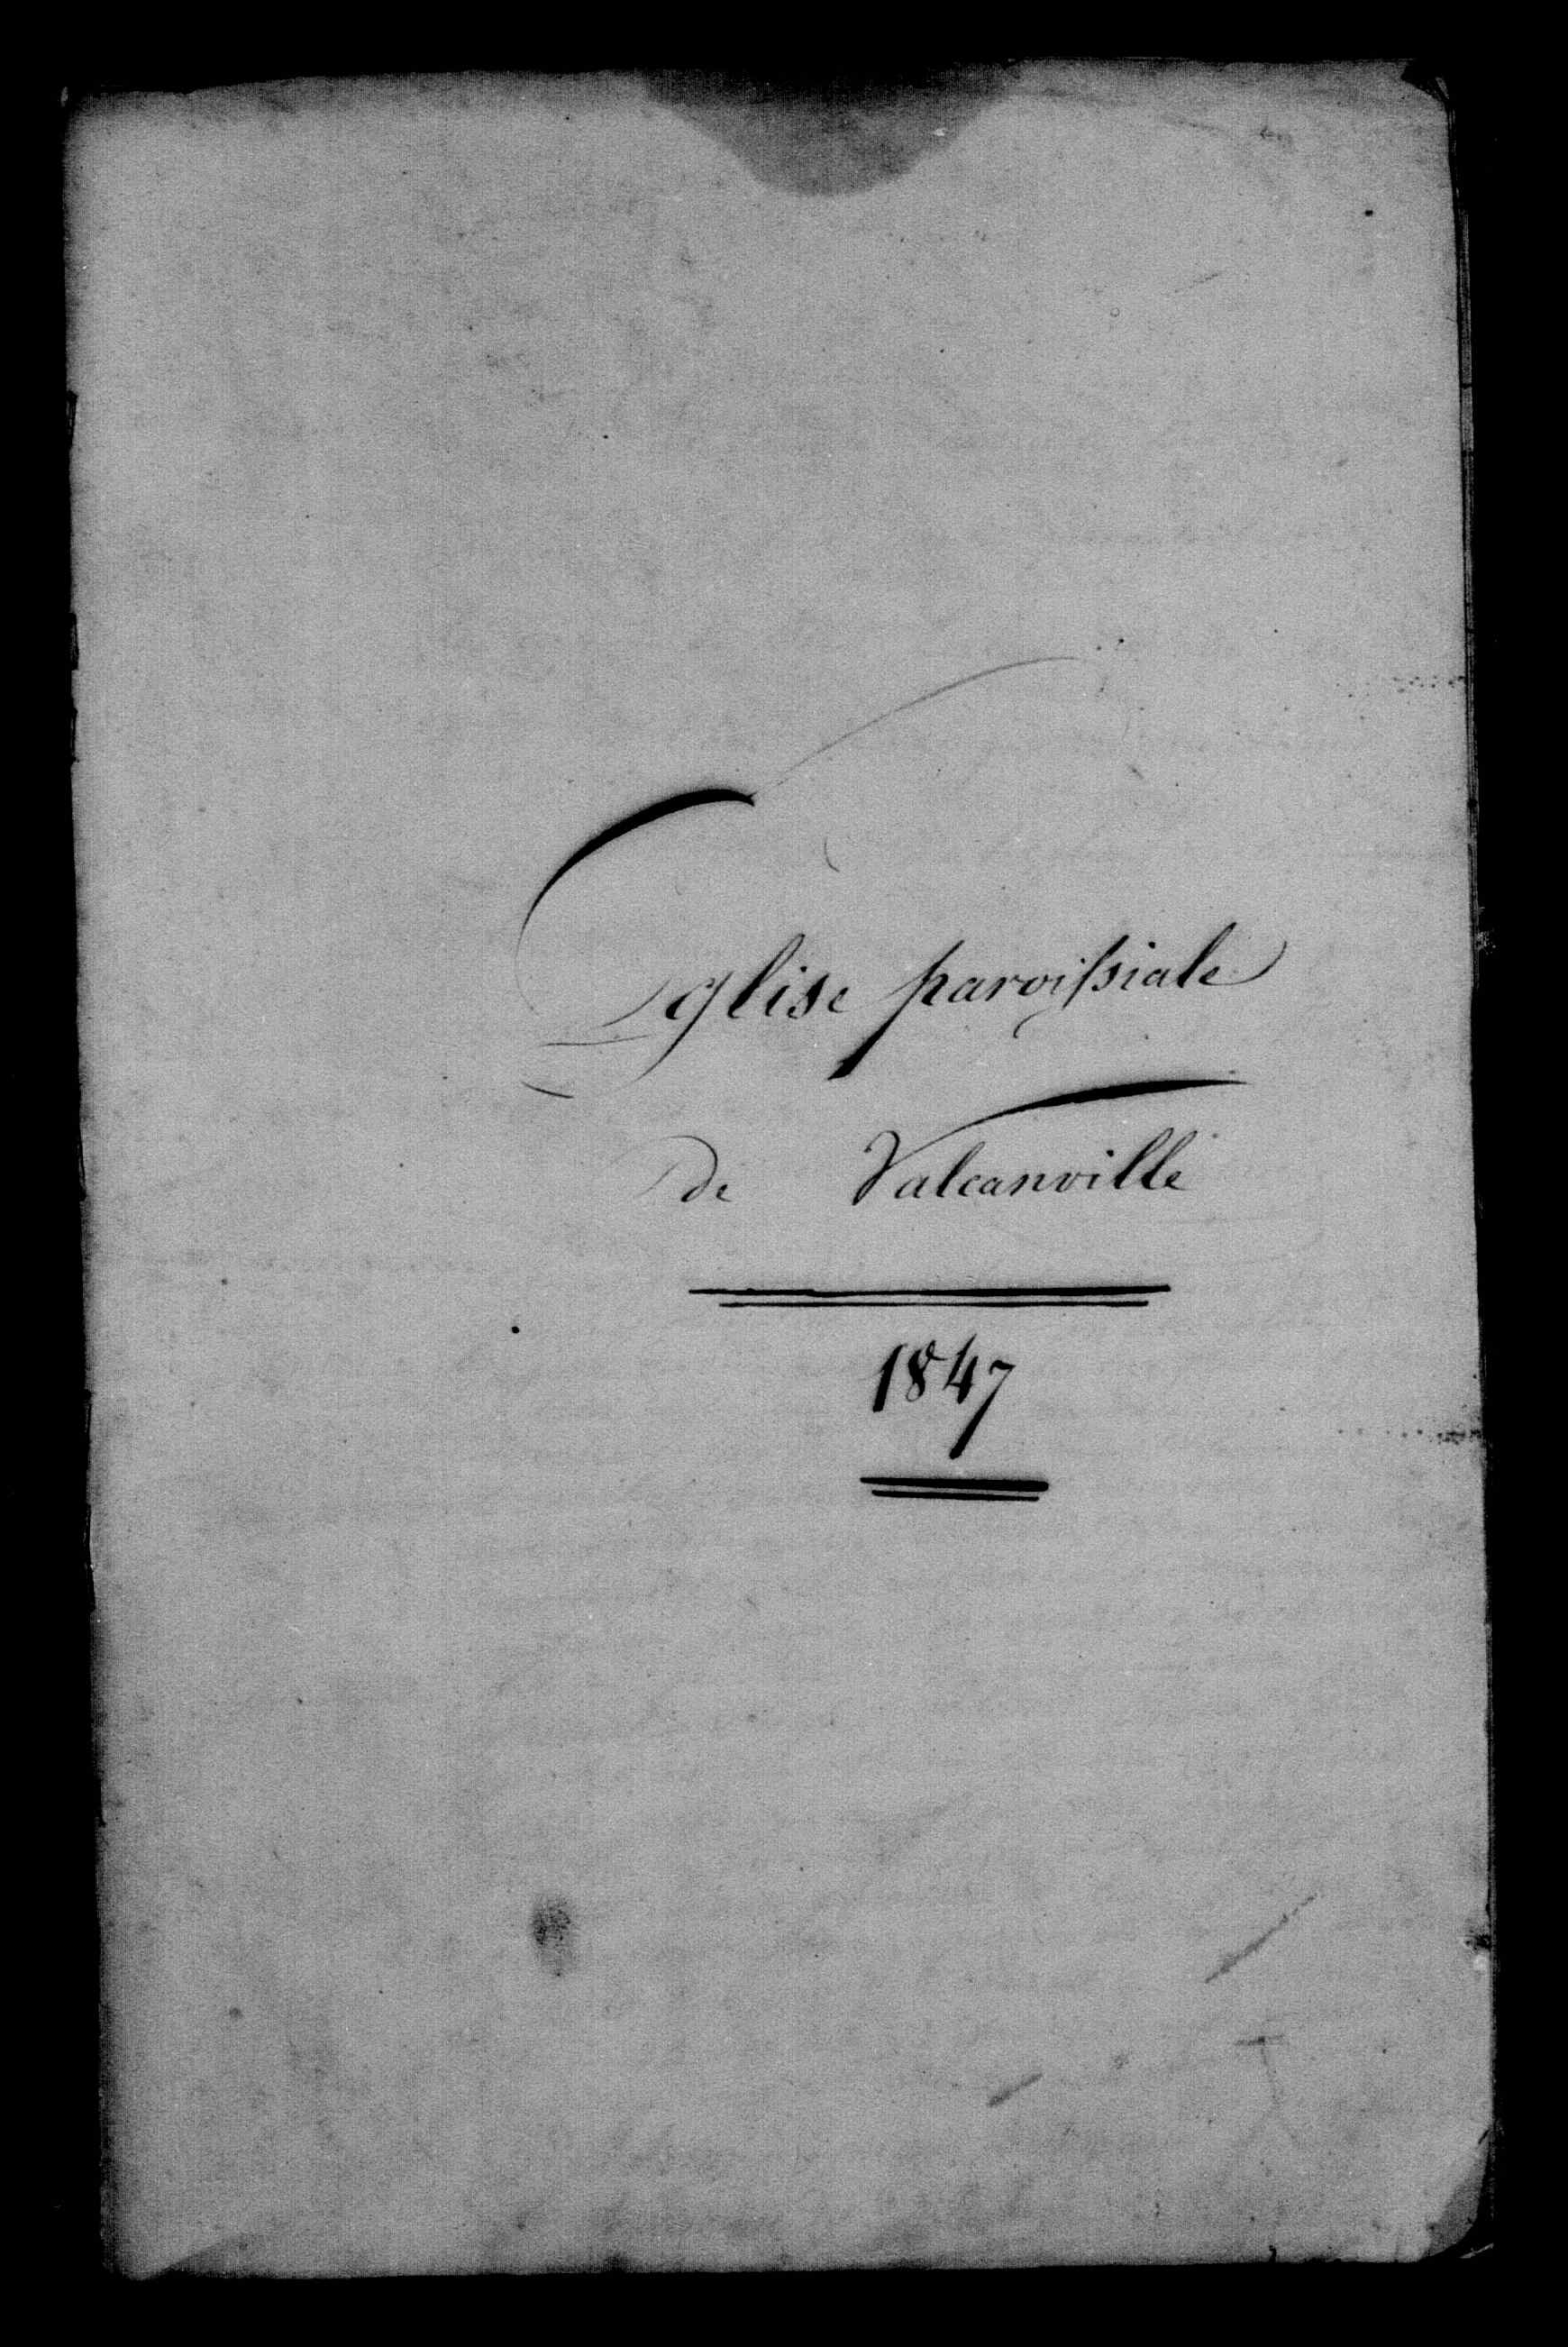 Eglise paroissiale
de Valcanville
1847